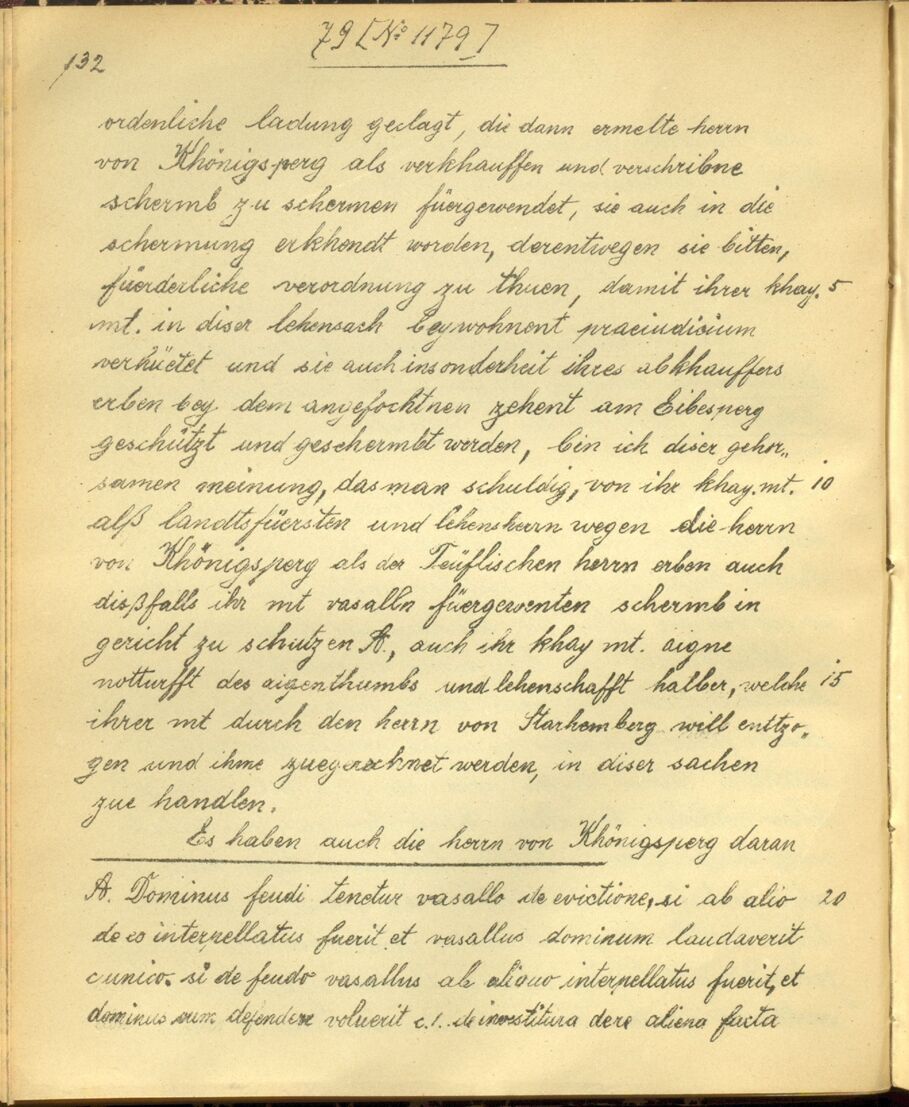 79 [No 1179]
132
ordenliche ladung geclagt, die dann ermelte herrn
von Khönigsperg als verkhauffen und verschribne
schermb zu schermen füergewendet, sie auch in die
schermung erkhendt worden, derentwegen sie bitten,
füerderliche verordnung zu thuen, damit ihrer khay. 5
mt. in diser lehensach beywohnent praeiudicium
verhüetet und sie auch insonderheit ihres abkhauffers
erben bey dem angefochtnen zehent am Eibesperg
geschützt und geschermbt werden, bin ich diser gehor„
samen meinung, das man schuldig, von ihr khay. mt. 10
alß landtsfüersten und lehensherrn wegen die herrn
von Khönigsperg als der Teüflischen herrn erben auch
dißfalls ihr mt vasalln füergewenten schermb in
gericht zu schutzen A., auch ihr khay mt. aigne
notturfft des aigenthumbs und lehenschafft halber, welche 15
ihrer mt durch den herrn von Starhemberg will enttzo„
gen und ihme zuegerechnet werden, in diser sachen
zue handlen.
Es haben auch die herrn von Khönigsperg daran
A. Dominus feudi tenetur vasallo de evictione, si ab alio 20
de eo interpellatus fuerit et vasallus dominum laudaverit
c unico. si de feudo vasallus ab aliquo interpellatus fuerit, et
dominus eum defendere voluerit c.1. de investitura de re aliena facta